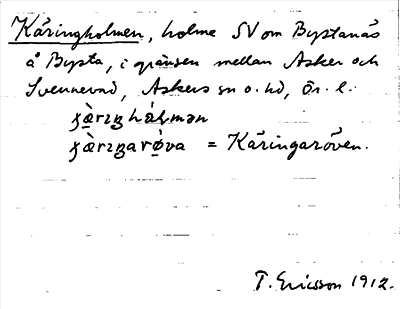 Käringholmen, holme SV om Bystanäs
å Bysta, i gränsen mellan Asker och
Svennevad, Askers sn o. hd, Ör. l.
= Käringaröven.
T. Ericsson 1912.